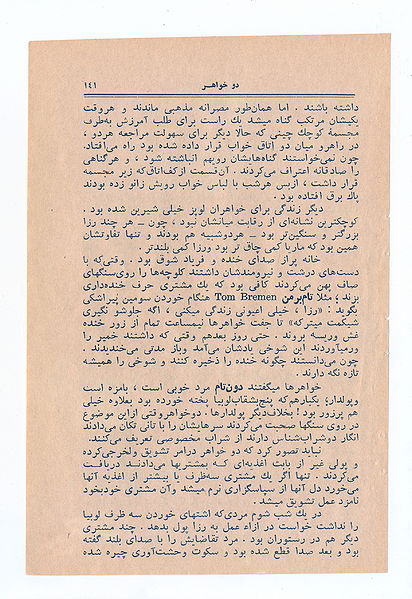 دو خواهر ۱۴۱
داشته باشند . اما همان‌طور مصرانه مذهبی ماندند و هروقت
یکیشان مرتکب گناه میشد یك راست برای طلب آمرزش به‌طرف
مجسمهٔ کوچك چینی که حالا دیگر برای سهولت مراجعه هردو ،
در راهرو میان دو اتاق خواب قرار داده شده بود راه می‌افتاد.
چون نمی‌خواستند گناه‌هایشان رویهم انباشته شود ، و هرگناهی
را صادقانه اعتراف می‌کردند . آن‌قسمت از کف‌اتاق‌که زیر مجسمه
قرار داشت ، ازبس هرشب با لباس خواب رویش زانو زده بودند
پاك برق افتاده بود .
دیگر زندگی برای خواهران لوپز خیلی شیرین شده بود .
کوچکترین نشانه‌ای از رقابت میانشان نبود ، چون ـ هر چند رزا
بزرگتر و سنگین‌تر بود ـ هردوشبیه هم بودند و تنها تفاوتشان
همین بود که ماریا کمی چاق تر بود ورزا کمی بلندتر .
خانه پراز صدای خنده و فریاد شوق بود . وقتی‌که با
دست‌های درشت و نیرومندشان داشتند کلوچه‌ها را روی‌سنگهای
صاف پهن می‌کردند کافی بود که یك مشتری حرف خنده‌داری
بزند ؛ مثلا تام‌برمن Tom Bremen هنگام خوردن سومین پیراشکی
بگوید : «رزا ، خیلی اعیونی زندگی میکنی ، اگه جلوشو نگیری
شیکمت میترکه» تا جفت خواهرها نیمساعت تمام از زور خنده
غش وریسه بروند . حتی روز بعدهم وقتی که داشتند خمیر را
ورمیآوردند این شوخی یادشان می‌آمد وباز مدتی می‌خندیدند.
چون می‌دانستند چگونه خنده را ذخیره کنند و شوخی را همیشه
تازه نگه دارند .
خواهرها میگفتند دون‌تام مرد خوبی است ، بامزه است
وپولدار؛ یکبارهم‌که پنج‌بشقاب‌لوبیا پخته خورده بود بعلاوه خیلی
هم پرزور بود ! بخلاف‌دیگر پولدارها . دوخواهروقتی ازاین موضوع
در روی سنگها صحبت می‌کردند سرهایشان را با تانی تکان‌می‌دادند
انگار دوشراب‌شناس دارند از شراب مخصوصی تعریف می‌کنند.
نباید تصور کرد که دو خواهر درامر تشویق ولخرجی‌کرده
و پولی غیر از بابت اغذیه‌ای که بمشتریها می‌دادند دریافت
می‌کردند . تنها اگر یك مشتری سه‌ظرف یا بیشتر از اغذیه آنها
می‌خورد دل آنها از سپاسگزاری نرم میشد وآن مشتری خودبخود
نامزد عمل تشویق میشد.
در یك شب شوم مردی‌که اشتهای خوردن سه ظرف لوبیا
را نداشت خواست در ازاء عمل به رزا پول بدهد . چند مشتری
دیگر هم در رستوران بود . مرد تقاضایش را با صدای بلند گفته
بود و بعد صدا قطع شده بود و سکوت وحشت‌آوری چیره شده